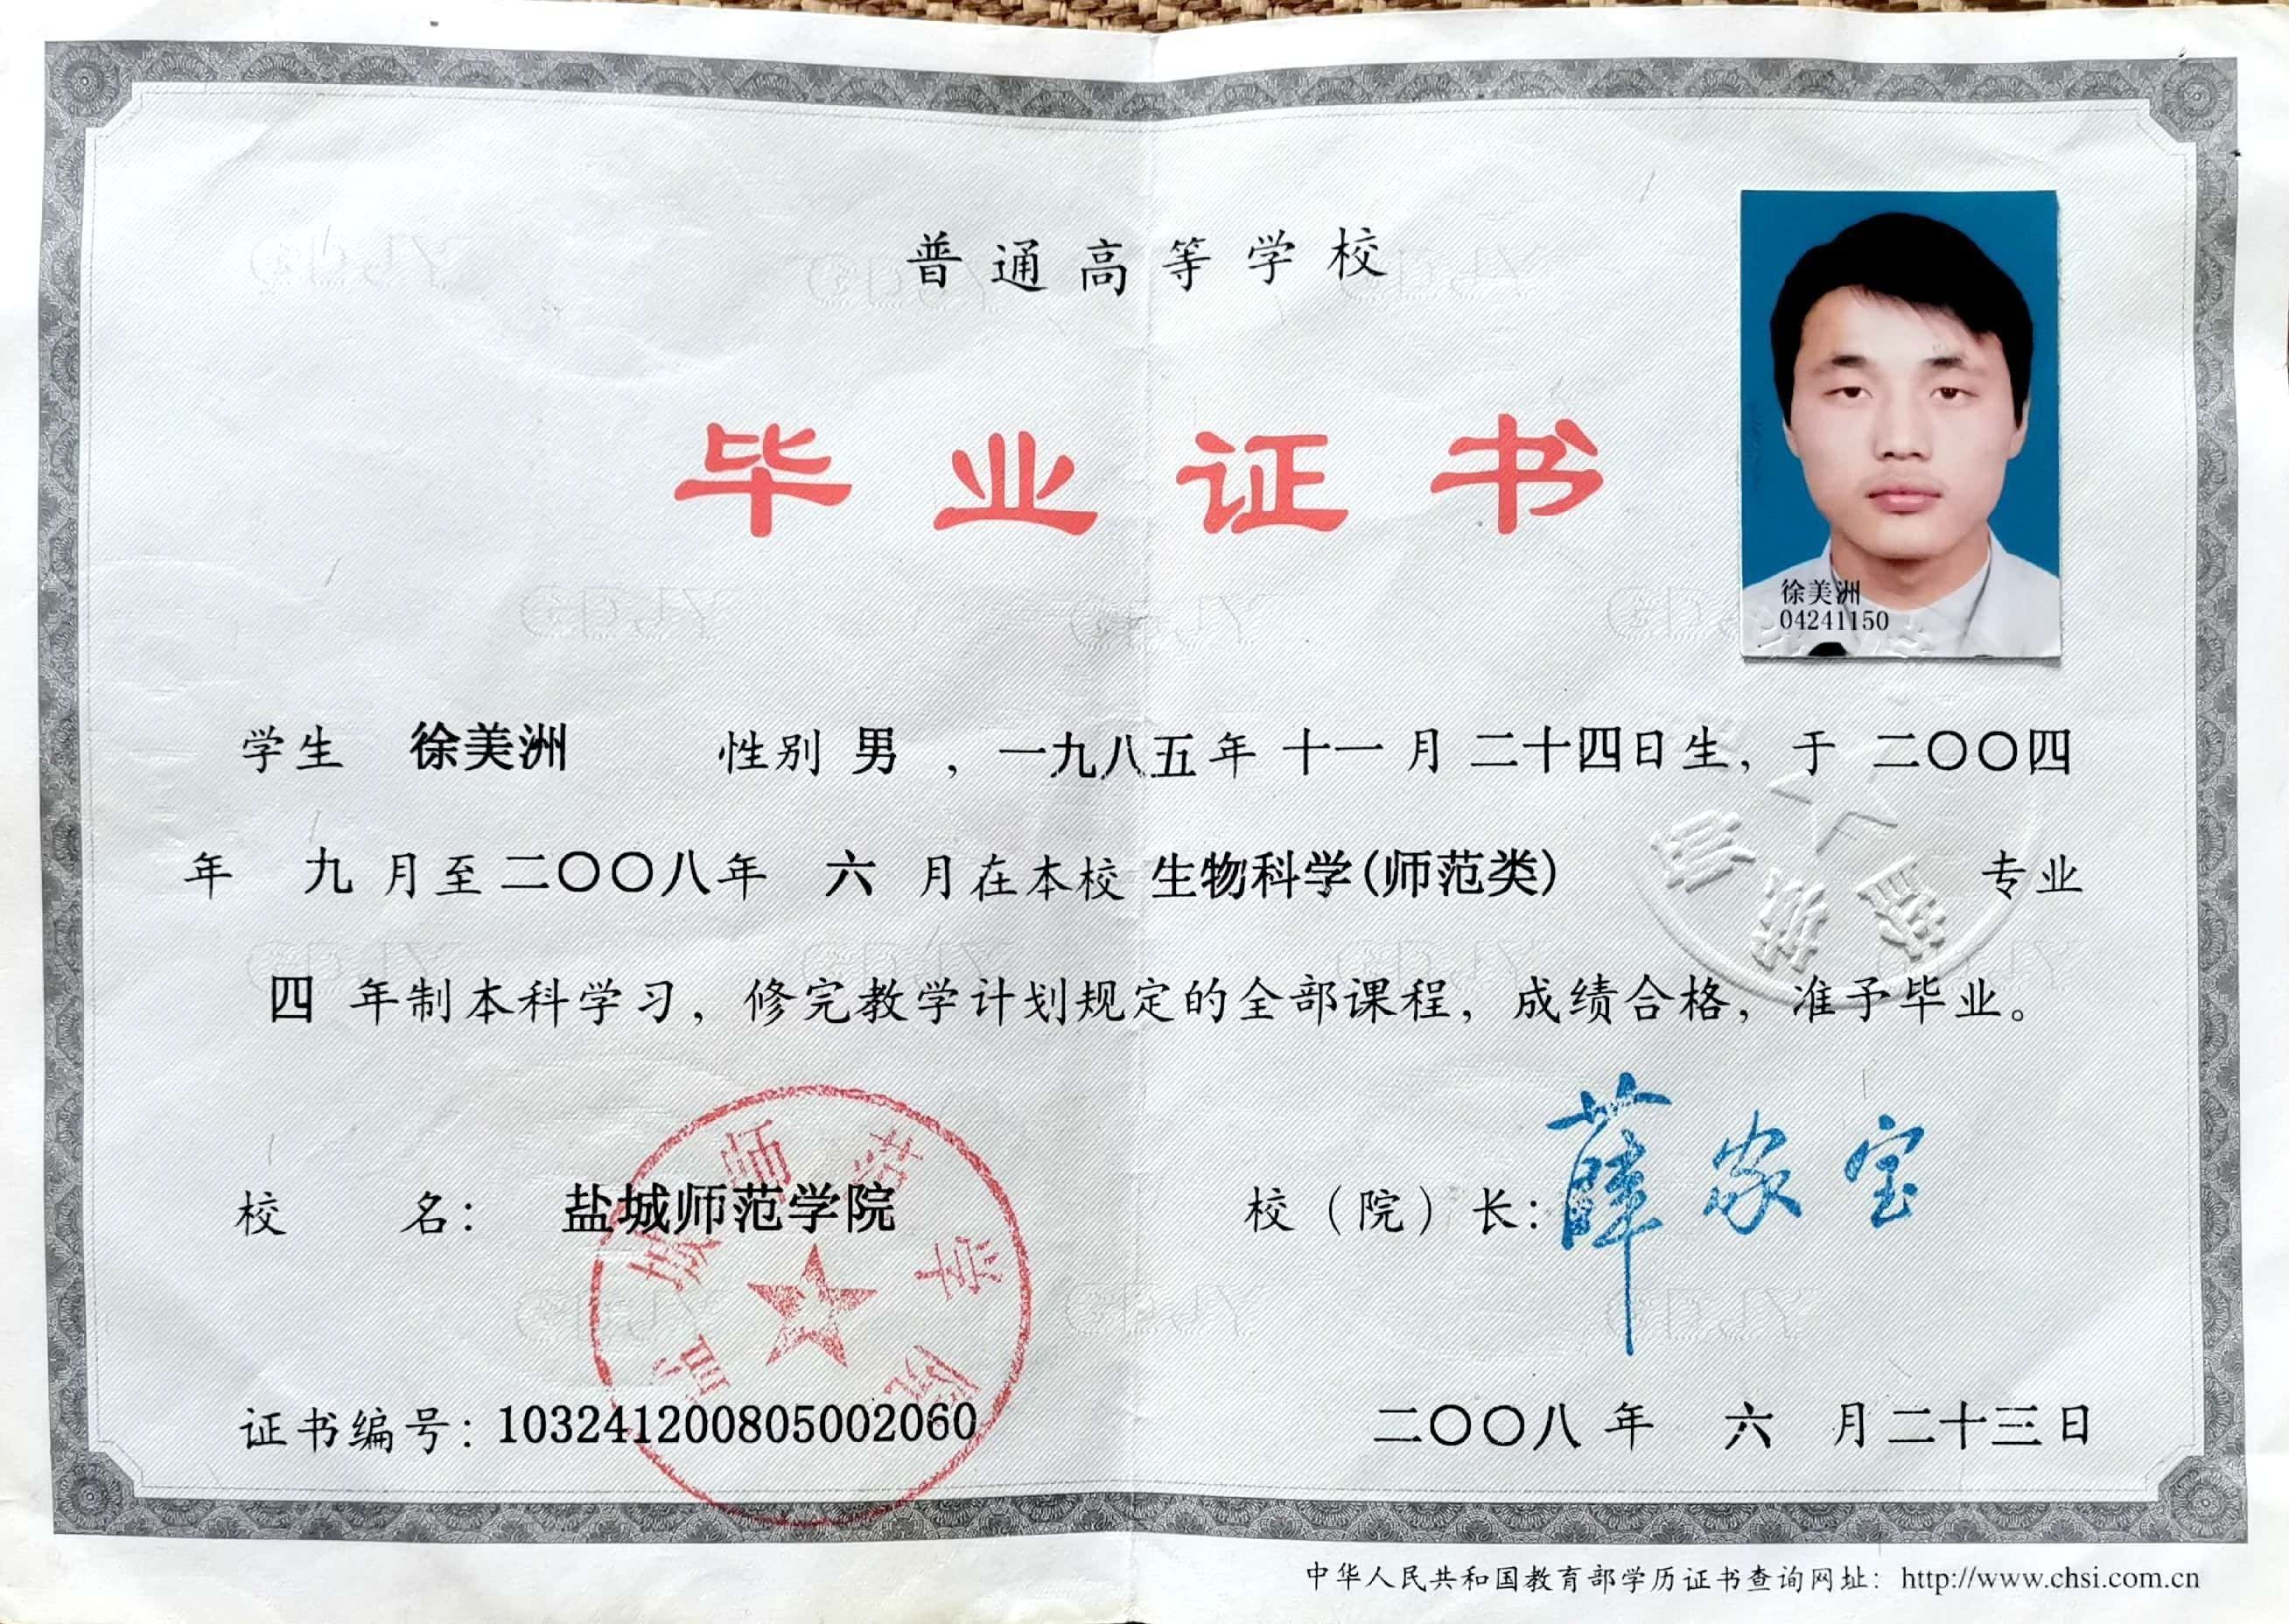 普通高等学校
毕业证书
徐美洲
04241150
学生 徐美洲 性别 男 ，一九八五年 十一 月 二十四日生，于 二〇〇四
年 九 月至 二〇〇八年 六 月在本校 生物科学(师范类) 专业
四 年制本科学习，修完教学计划规定的全部课程，成绩合格，准予毕业。
校 名： 盐城师范学院
校（院）长：薛家宝
盐城师范学院
证书编号：103241200805002060
二〇〇八 年 六 月二十三日
中华人民共和国教育部学历证书查询网址：http://www.chsi.com.cn